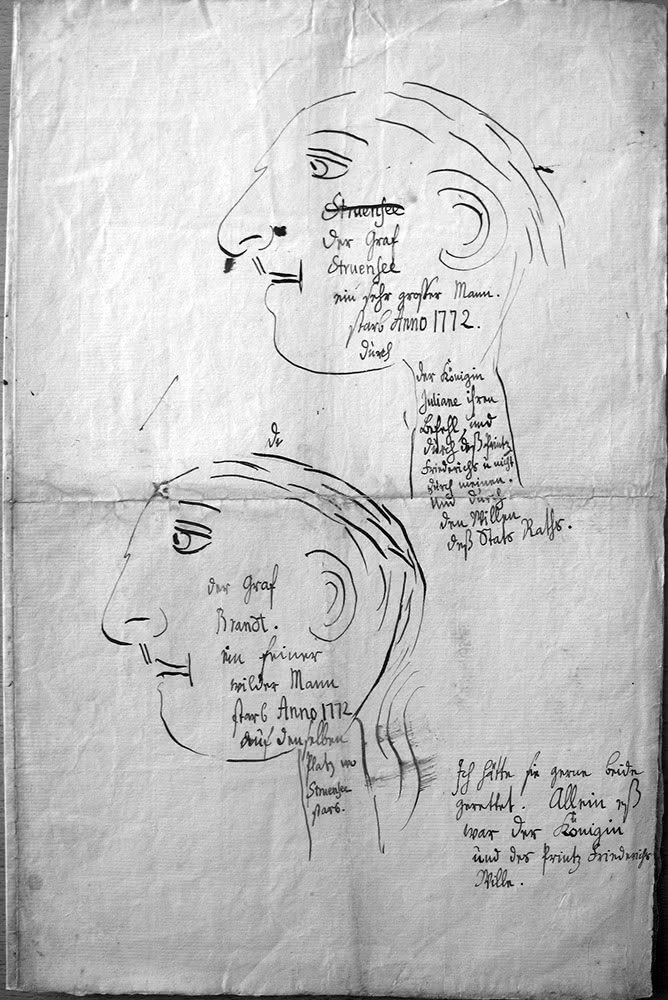 Struensee
der Graf
Struensee
ein sehr grosser Mann.
starb Anno 1772.
durch
der Königin
Juliane ihren
Befehl, und
durch deß Printz
Friederichs u nicht
durch meinen.
Und durch
den Willen
deß Stats Raths.
de
der Graf
Brandt.
ein feiner
wilder Mann
starb Anno 1772
auf denselben
Platz wo
Struensee
starb.
Ich hätte sie gerne beide
gerettet. Allein eß
war der Königin
und des Printz Friederichs
Wille.